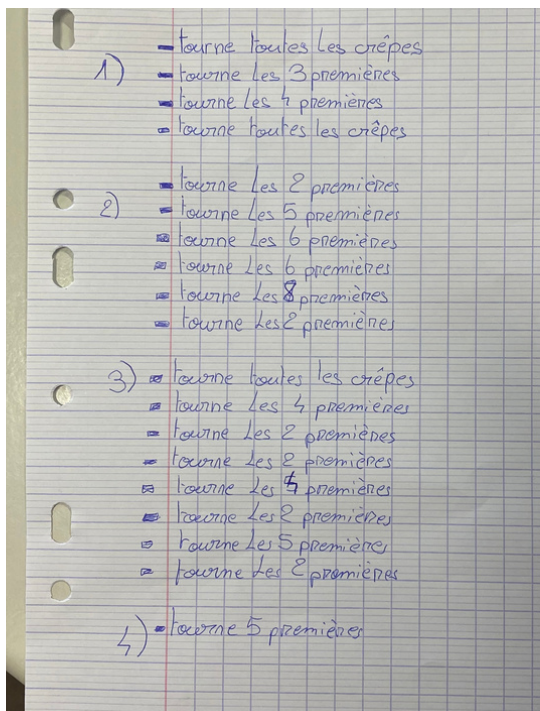 1)
- tourne toutes les crêpes
- tourne les 3 premières
- tourne les 4 premières
- tourne toutes les crêpes
2)
- tourne les 2 premières
- tourne les 5 premières
- tourne les 6 premières
- tourne les 6 premières
- tourne les 8 premières
- tourne les 2 premières
3)
- tourne toutes les crêpes
- tourne les 4 premières
- tourne les 2 premières
- tourne les 2 premières
- tourne les premières
- tourne les 2 premières
- tourne les 5 premières
- tourne les 2 premières
4)
- tourne 5 premières